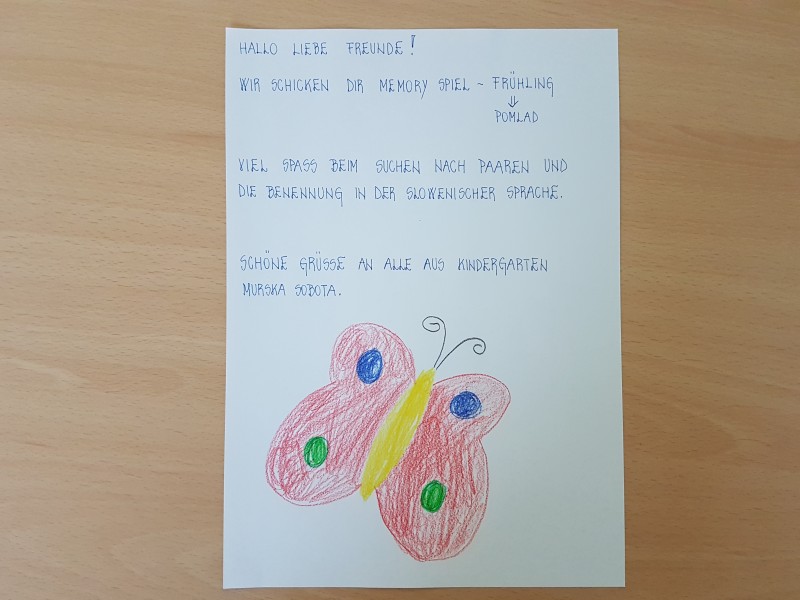 HALLO LIEBE FREUNDE!
WIR SCHICKEN DIR MEMORY SPIEL - FRÜHLING
⇓
POMLAD
VIEL SPASS BEIM SUCHEN NACH PAAREN UND
DIE BENENNUNG IN DER SLOWENISCHER SPRACHE.
SCHÖNE GRÜSSE AN ALLE AUS KINDERGARTEN
MURSKA SOBOTA.